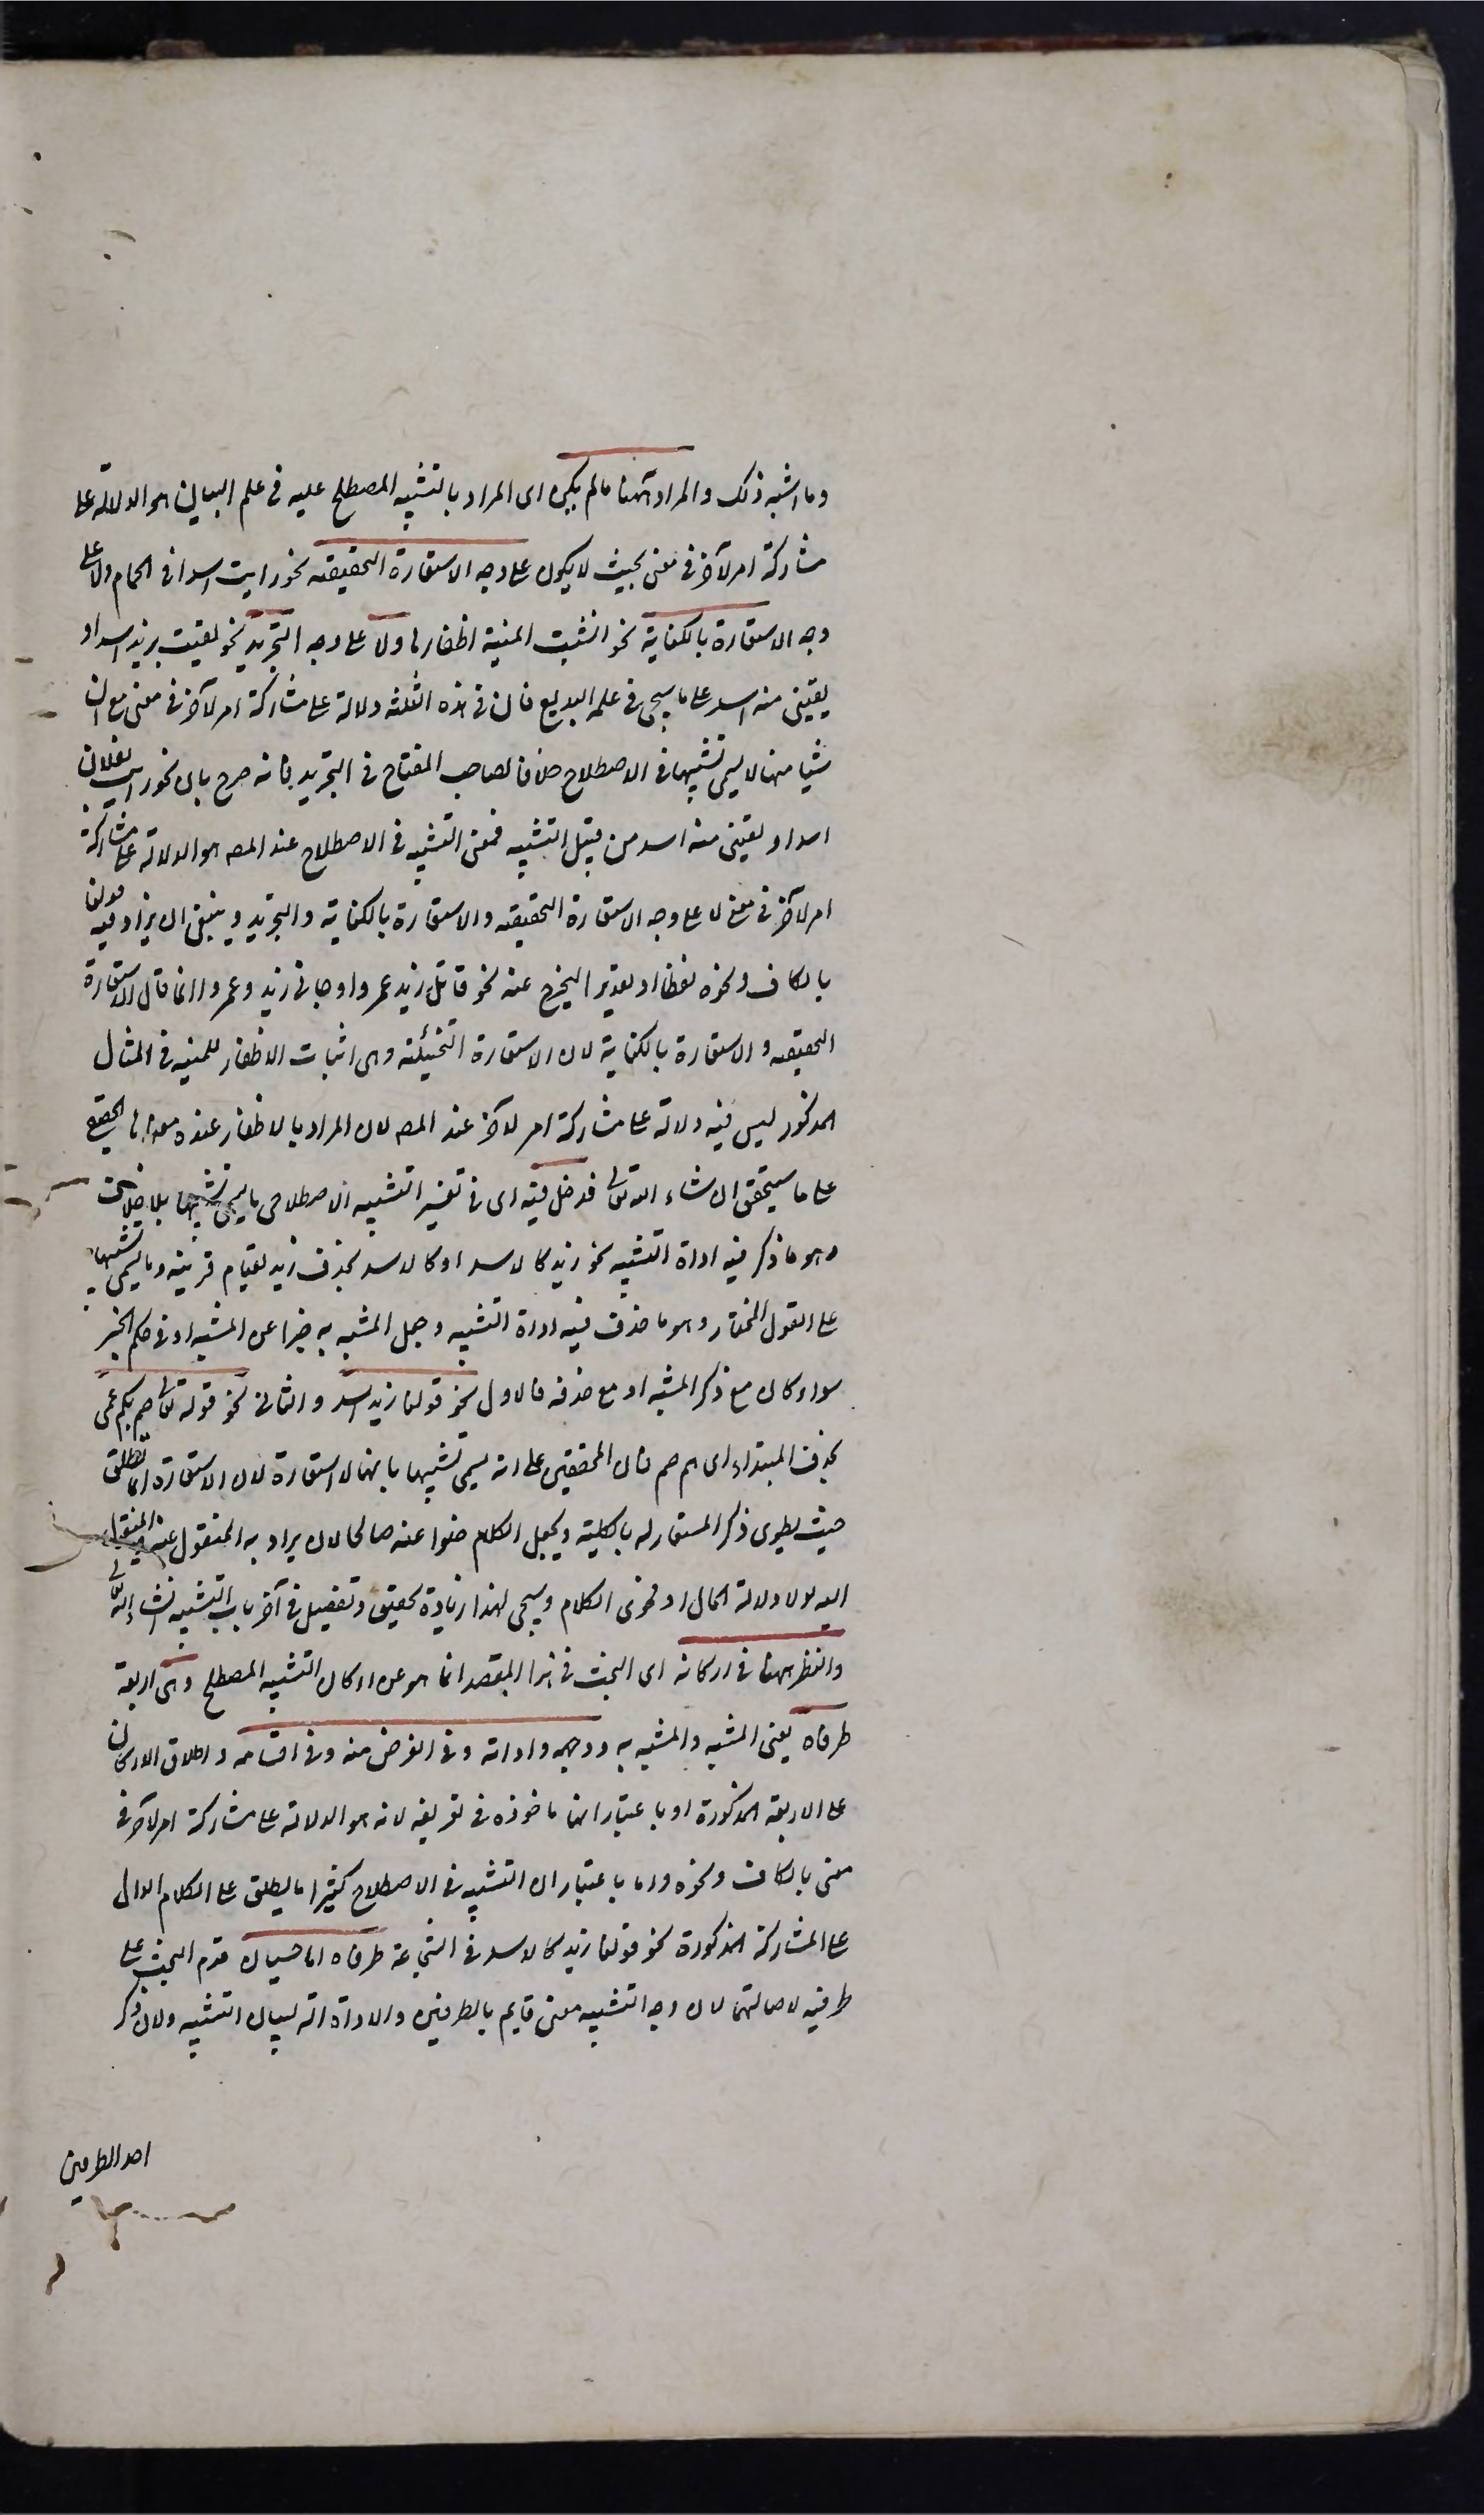 وما اشبه ذلك والمراد ههنا ما لم يكن اى المراد بالتشبيه المصطلح عليه فى علم البيان هو الدلالة على
مشاركة امر لآخر فى معنى بحيث لا يكون على وجه الاستعارة التحقيقية نحو رايت اسدا فى الحمام ولا على
وجه الاستعارة بالكناية نحو انشبت المنية اظفارها ولا على وجه التجريد نحو لقيت بزيد اسدا و
لقينى منه اسد على ما سيجى فى علم البديع فان فى هذه الثلثة دلالة على مشاركة امر لآخر فى معنى مع ان
شيا منها لا يسمى تشبيها فى الاصطلاح خلافا لصاحب المفتاح فى التجريد فانه صرح بان نحو رايت بفلان
اسدا و لقينى منه اسد من قبيل التشبيه فمعنى التشبيه فى الاصطلاح عند المص هو الدلالة على مشاركة
امر لآخر فى معنى لا على وجه الاستعارة التحقيقية والاستعارة بالكناية والتجريد وينبغى ان يزاد فيه قولنا
بالكاف ونحوه لفظا او تقديرا ليخرج عنه نحو قاتل زيد عمروا وجانى زيد وعمرو وانما قال الاستعارة
التحقيقية والاستعارة بالكناية لان الاستعارة التخييلية وهى اثبات الاظفار للمنية فى المثال
المذكور ليس فيه دلالة على مشاركة امر لآخر عند المص لان المراد بالاظفار عنده معناها الحقيقى
على ما سيتحقق ان شاء الله تعالى فدخل فيه اى فى تفسير التشبيه الاصطلاحى ما يسمى تشبيها بلا خلاف
وهو ما ذكر فيه اداة التشبيه نحو زيد كالاسد او كالاسد بحذف زيد لقيام قرينة وما يسمى تشبيها
على القول المختار وهو ما حذف فيه اداة التشبيه وجعل المشبه به خبرا عن المشبه او فى حكم الخبر
سواء كان مع ذكر المشبه او مع حذفه فالاول نحو قولنا زيد اسد والثانى نحو قوله تعالى صم بكم عمى
بحذف المبتداء اى هم صم فان المحققين على انه يسمى تشبيها بليغا لا استعارة لان الاستعارة انما تطلق
حيث يطوى ذكر المستعار له بالكلية ويجعل الكلام خلوا عنه صالحا لان يراد به المنقول عنه والمنقول
اليه لولا دلالة الحال او فحوى الكلام وسيجى لهذا زيادة تحقيق وتفصيل فى آخر باب التشبيه انشاء الله تعالى
والنظر ههنا فى اركانه اى البحث فى هذا المقصد انما هو عن اركان التشبيه المصطلح وهى اربعة
طرفاه يعنى المشبه والمشبه به ووجهه واداته وفى الغرض منه وفى اقسامه واطلاق الاركان
على الاربعة المذكورة اما باعتبار انها ماخوذة فى تعريفه لانه هو الدلالة على مشاركة امر لآخر فى
معنى بالكاف ونحوه واما باعتبار ان التشبيه فى الاصطلاح كثيرا ما يطلق على الكلام الدال
على المشاركة المذكورة نحو قولنا زيد كالاسد فى الشجاعة طرفاه اما حسيان قدم البحث على
طرفيه لاصالتهما لان وجه التشبيه معنى قايم بالطرفين والاداة آلة لبيان التشبيه ولان ذكر
احد الطرفين